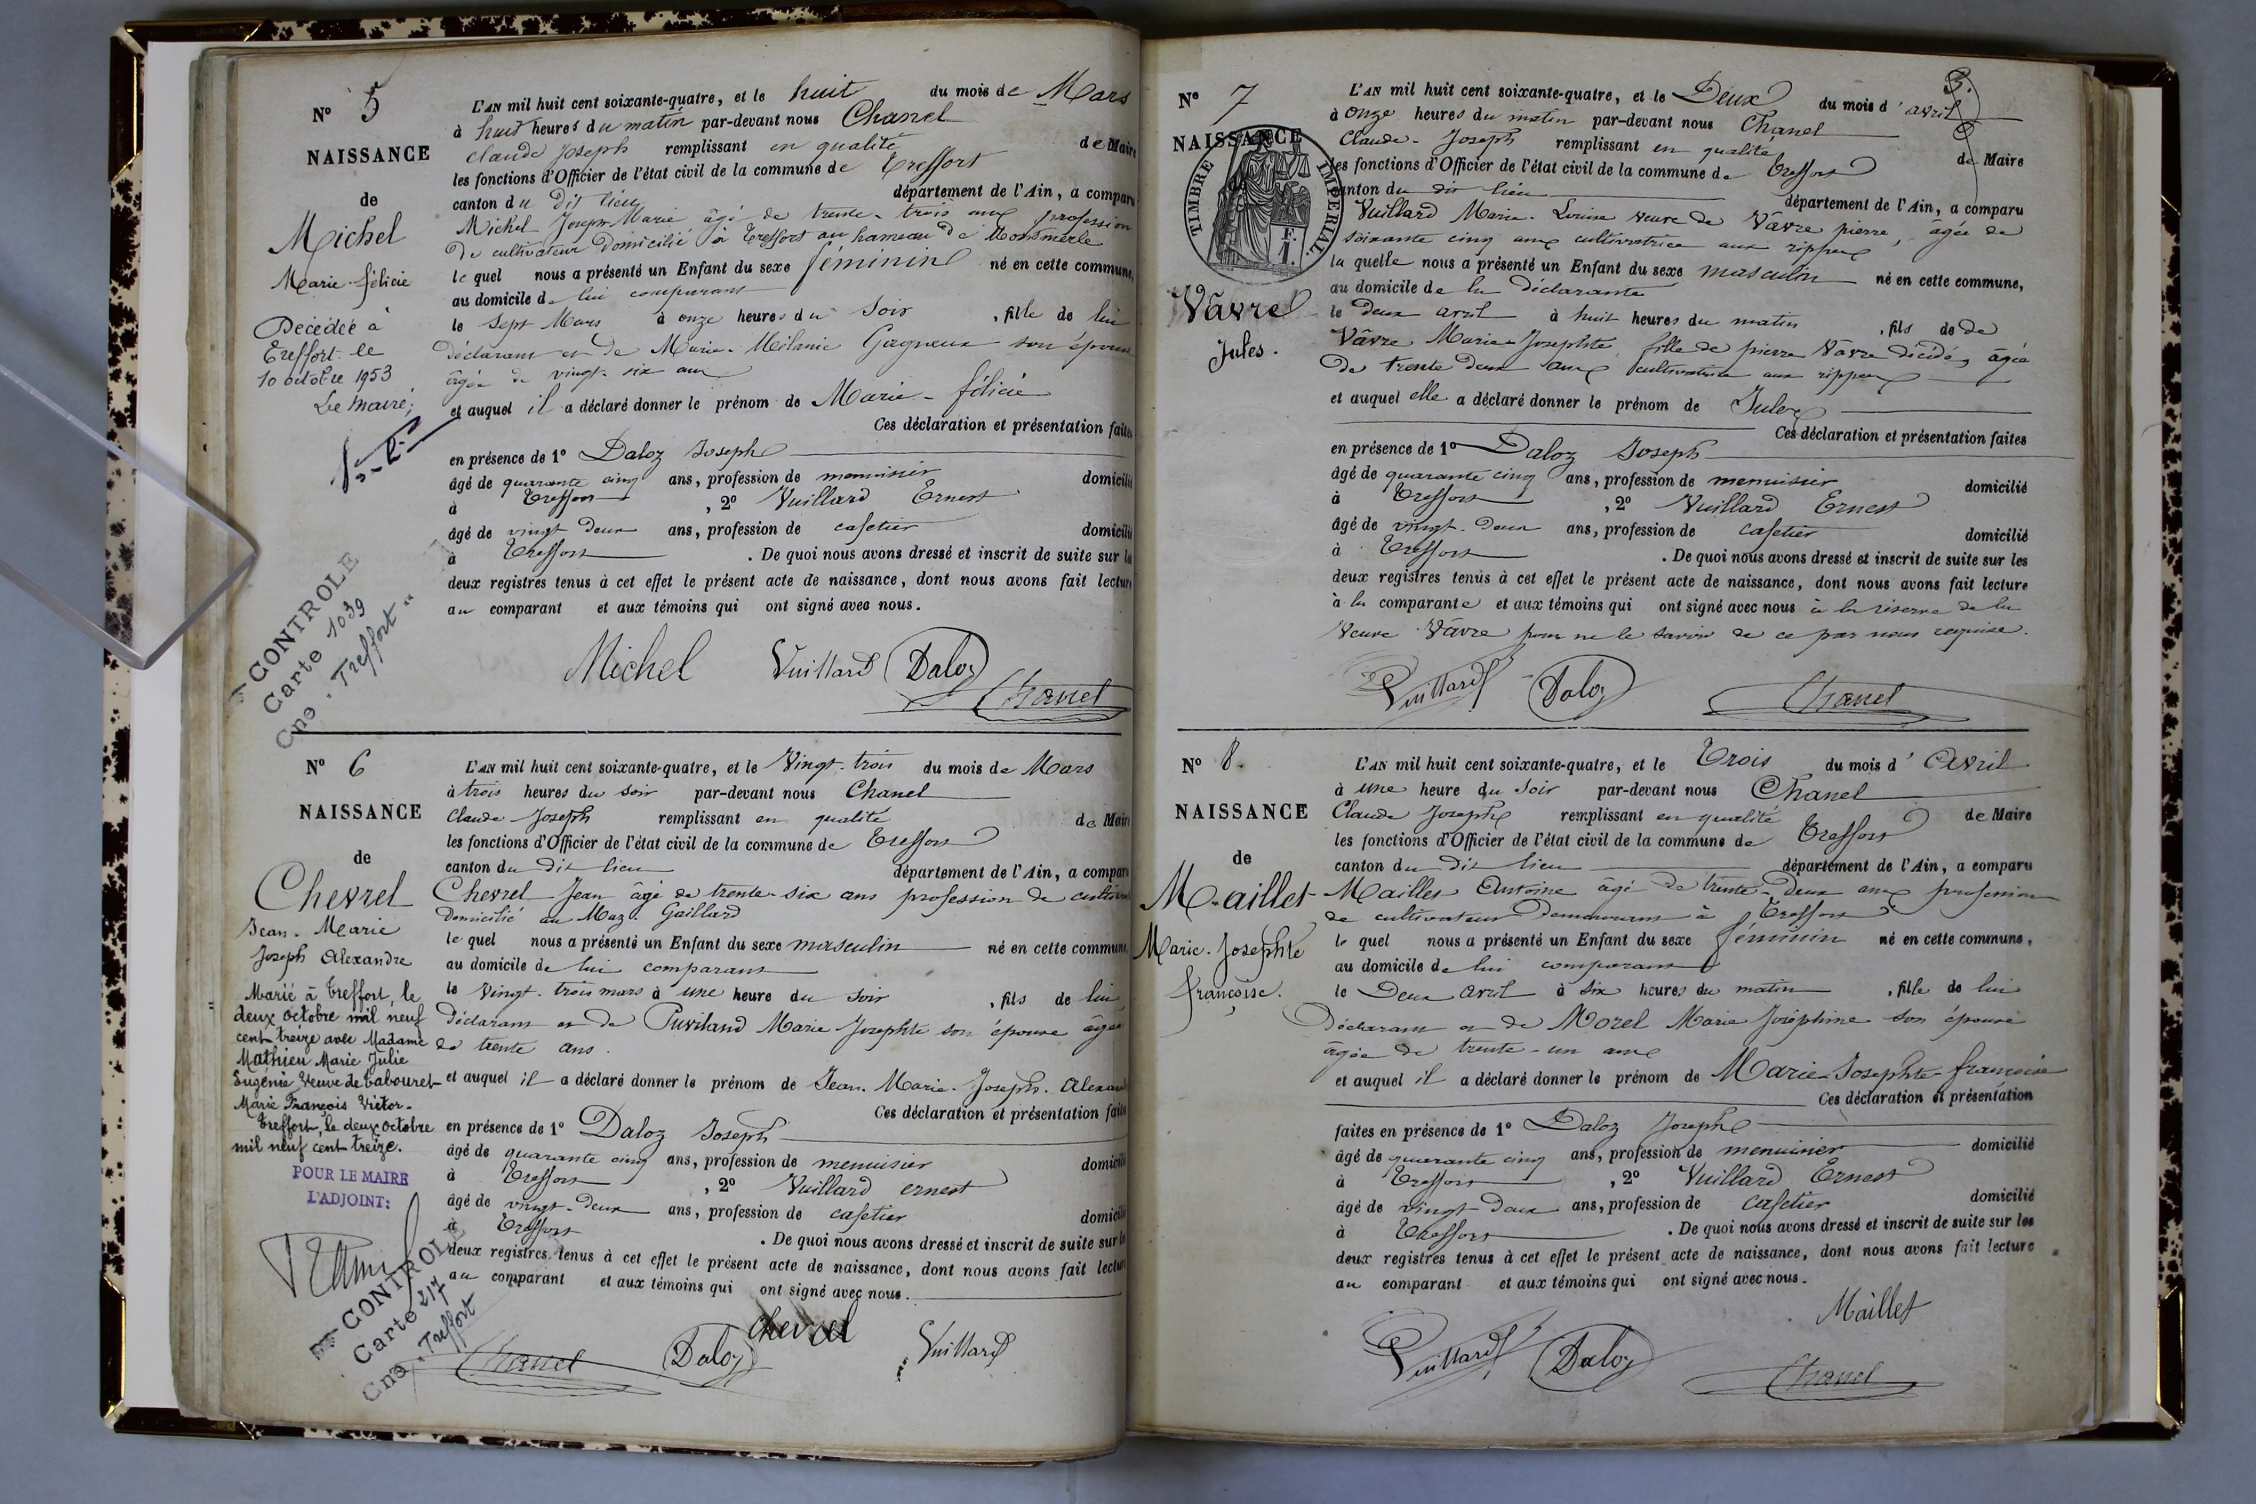 N° 5
NAISSANCE
de
Michel
Marie félicie
Décédée à
Treffort le
10 octobre 1953
Le Maire;
CONTROLE
Carte 1039
Cne . Treffort
L'AN mil huit cent soixante-quatre, et le huit du mois de Mars
à huit heures du matin par-devant nous Chanel
Claude Joseph remplissant en qualité de Maire
les fonctions d'Officier de l'état civil de la commune de Treffort
canton du dit lieu département de l'Ain, a comparu
Michel Joseph Marie âgé de trente-trois ans profession
de cultivateur domicilié à Treffort au hameau de Montmerle
le quel nous a présenté un Enfant du sexe féminin né en cette commune,
au domicile de lui comparant
le sept Mars à onze heures du soir , fille de lui
déclarant et de Marie-Mélanie Gagneux son épouse
âgée de vingt-six ans
et auquel il a déclaré donner le prénom de Marie-félicie
Ces déclaration et présentation faites
en présence de 1° Daloz Joseph
âgé de quarante cinq ans, profession de menuisier domicilié
à Treffort , 2° Vuillard Ernest
âgé de vingt deux ans, profession de cafetier domicilié
à Treffort . De quoi nous avons dressé et inscrit de suite sur les
deux registres tenus à cet effet le présent acte de naissance, dont nous avons fait lecture
au comparant et aux témoins qui ont signé avec nous.
Michel Vuillard Daloz
Chanel
N° 6
NAISSANCE
de
Chevrel
Jean-Marie
Joseph Alexandre
Marié à Treffort, le
deux octobre mil neuf
cent treize avec Madame
Mathieu Marie Julie
Eugénie Veuve de Tabouret
Marie François Victor.
Treffort, le deux octobre
mil neuf cent treize.
POUR LE MAIRE
L'ADJOINT:
CONTROLE
Carte 217
Cne . Treffort
L'AN mil huit cent soixante-quatre, et le Vingt-trois du mois de Mars
à trois heures du soir par-devant nous Chanel
Claude Joseph remplissant en qualité de Maire
les fonctions d'Officier de l'état civil de la commune de Treffort
canton du dit lieu département de l'Ain, a comparu
Chevrel Jean âgé de trente-six ans profession de cultivateur
domicilié au Maz Gaillard
le quel nous a présenté un Enfant du sexe masculin né en cette commune,
au domicile de lui comparant
le vingt-trois mars à une heure du soir , fils de lui
déclarant et de Puviland Marie Josephte son épouse âgée
de trente ans.
et auquel il a déclaré donner le prénom de Jean-Marie-Joseph-Alexandre
Ces déclaration et présentation faites
en présence de 1° Daloz Joseph
âgé de quarante cinq ans, profession de menuisier domicilié
à Treffort , 2° Vuillard ernest
âgé de vingt-deux ans, profession de cafetier domicilié
à Treffort . De quoi nous avons dressé et inscrit de suite sur les
deux registres tenus à cet effet le présent acte de naissance, dont nous avons fait lecture
au comparant et aux témoins qui ont signé avec nous.
Chevrel
Chanel Daloz Vuillard
3.
N° 7
NAISSANCE
TIMBRE IMPERIAL.
F.
1.
Vâvre
Jules.
L'AN mil huit cent soixante-quatre, et le Deux du mois d'avril
à onze heures du matin par-devant nous Chanel
Claude-Joseph remplissant en qualité de Maire
les fonctions d'Officier de l'état civil de la commune de Treffort
canton du dit lieu département de l'Ain, a comparu
Vuillard Marie-Louise veuve de Vâvre pierre, âgée de
soixante cinq ans cultivatrice aux rippes
la quelle nous a présenté un Enfant du sexe masculin né en cette commune,
au domicile de la déclarante
le deux avril à huit heures du matin , fils de de
Vâvre Marie-Josephte fille de pierre Vâvre décédé, âgée
de trente deux ans cultivatrice aux rippes
et auquel elle a déclaré donner le prénom de Jules
Ces déclaration et présentation faites
en présence de 1° Daloz Joseph
âgé de quarante cinq ans, profession de menuisier domicilié
à Treffort , 2° Vuillard Ernest
âgé de vingt-deux ans, profession de cafetier domicilié
à Treffort . De quoi nous avons dressé et inscrit de suite sur les
deux registres tenus à cet effet le présent acte de naissance, dont nous avons fait lecture
à la comparante et aux témoins qui ont signé avec nous à la réserve de la
Veuve Vâvre pour ne le savoir de ce par nous requise.
Vuillard Daloz Chanel
N° 8.
NAISSANCE
de
Maillet
Marie-Josephte
françoise.
L'AN mil huit cent soixante-quatre, et le Trois du mois d'Avril
à une heure du soir par-devant nous Chanel
Claude Joseph remplissant en qualité de Maire
les fonctions d'Officier de l'état civil de la commune de Treffort
canton du dit lieu département de l'Ain, a comparu
Maillet Antoine âgé de trente-deux ans profession
de cultivateur demeurant à Treffort
le quel nous a présenté un Enfant du sexe féminin né en cette commune,
au domicile de lui comparant
le Deux avril à six heures du matin , fille de lui
déclarant et de Morel Marie Joséphine son épouse
âgée de trente-un ans
et auquel il a déclaré donner le prénom de Marie-Josephte-françoise
Ces déclaration et présentation
faites en présence de 1° Daloz Joseph
âgé de quarante cinq ans, profession de menuisier domicilié
à Treffort , 2° Vuillard Ernest
âgé de vingt deux ans, profession de cafetier domicilié
à Treffort . De quoi nous avons dressé et inscrit de suite sur les
deux registres tenus à cet effet le présent acte de naissance, dont nous avons fait lecture
au comparant et aux témoins qui ont signé avec nous.
Maillet
Vuillard Daloz Chanel